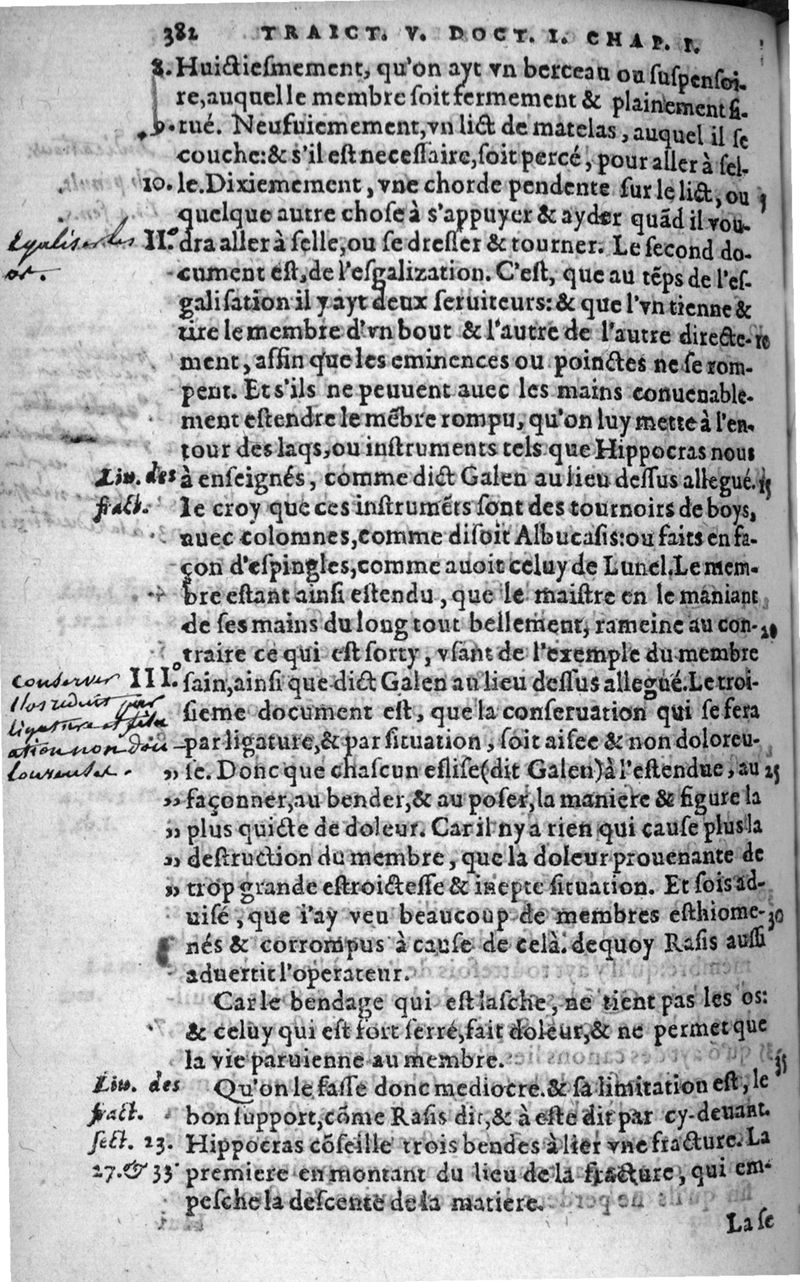 382 TRAICT. V. DOCT. I. CHAP. I.
8. Huictiesmement, qu'on ayt vn berceau ou suspensoi-
re, auquel le membre soit fermement & plainement si-
9. tué. Neufuiemement, vn lict de matelas, auquel il se
couche: & s'il est necessaire, soit percé, pour aller à sel-
10. le. Dixiemement, vne chorde pendente sur le lict, ou 5
quelque autre chose à s'appuyer & ayder quãd il vou-
Egaliser les II. dra aller à selle, ou se dresser & tourner. Le second do-
os. cument est, de l'esgalization. C'est, que au tẽps de l'es-
galisation il y ayt deux seruiteurs: & que l'vn tienne &
tire le membre d'vn bout & l'autre de l'autre directe- 10
ment, affin que les eminences ou poinctes ne se rom-
pent. Et s'ils ne peuuent auec les mains conuenable-
ment estendre le mẽbre rompu, qu'on luy mette à l'en-
tour des laqs, ou instruments tels que Hippocras nous
Liu. des à enseignés, comme dict Galen au lieu dessus allegué. 15
fract. Ie croy que ces instrumẽts sont des tournoirs de boys,
auec colomnes, comme disoit Albucasis: ou faits en fa-
çon d'espingles, comme auoit celuy de Lunel. Le mem-
bre estant ainsi estendu, que le maistre en le maniant
de ses mains du long tout bellement, rameine au con- 20
traire ce qui est sorty, vsant de l'exemple du membre
conserver III. sain, ainsi que dict Galen au lieu dessus allegué. Le troi-
l'os reduit par sieme document est, que la conseruation qui se fera
ligature et situ
ation non dou par ligature, & par situation, soit aisee & non doloreu-
loureuse. „ se. Donc que chascun eslise (dit Galen) à l'estendue, au 25
„ façonner, au bender, & au poser, la maniere & figure la
„ plus quicte de doleur. Car il ny a rien qui cause plus la
„ destruction du membre, que la doleur prouenante de
„ trop grande estroictesse & inepte situation. Et sois ad-
uisé, que i'ay veu beaucoup de membres esthiome- 30
nés & corrompus à cause de celà. dequoy Rasis aussi
aduertit l'operateur.
Car le bendage qui est lasche, ne tient pas les os:
& celuy qui est fort serré, fait doleur, & ne permet que
la vie paruienne au membre. 35
Liu. des Qu'on le fasse donc mediocre. & sa limitation est, le
fract. bon support, cõme Rasis dit, & à esté dit par cy-deuant.
sect. 23. Hippocras cõseille trois bendes à lier vne fracture. La
27. & 33 premiere en montant du lieu de la fracture, qui em-
pesche la descente de la matiere.
La se